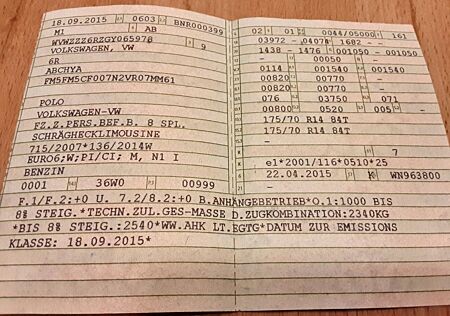 18.09.2015 0603 BNR000399
M1 AB
WVWZZZ6RZGY065978 9
VOLKSWAGEN, VW
6R
ABCHYA
FM5FM5CF007N2VR07MM61
POLO
VOLKSWAGEN-VW
FZ.Z.PERS.BEF.B. 8 SPL.
SCHRÄGHECKLIMOUSINE
715/2007*136/2014W
EURO6;W;PI/CI; M, N1 I
BENZIN
0001 36W0 00999
02 01 0044/05000 161
03972 - 04074 1682 -
1438 - 1476 001050 001050
- 00050 -
0114 001540 001540
00820 00770 -
00820 00770 -
076 03750 071
00800 0520 005 -
175/70 R14 84T
175/70 R14 84T
-
7
K e1*2001/116*0510*25
22.04.2015 K WN963800
F.1/F.2:+0 U. 7.2/8.2:+0 B.ANHÄNGEBETRIEB*O.1:1000 BIS
8% STEIG.*TECHN.ZUL.GES-MASSE D.ZUGKOMBINATION:2340KG
*BIS 8% STEIG.:2540*WW.AHK LT.EGTG*DATUM ZUR EMISSIONS
KLASSE: 18.09.2015*